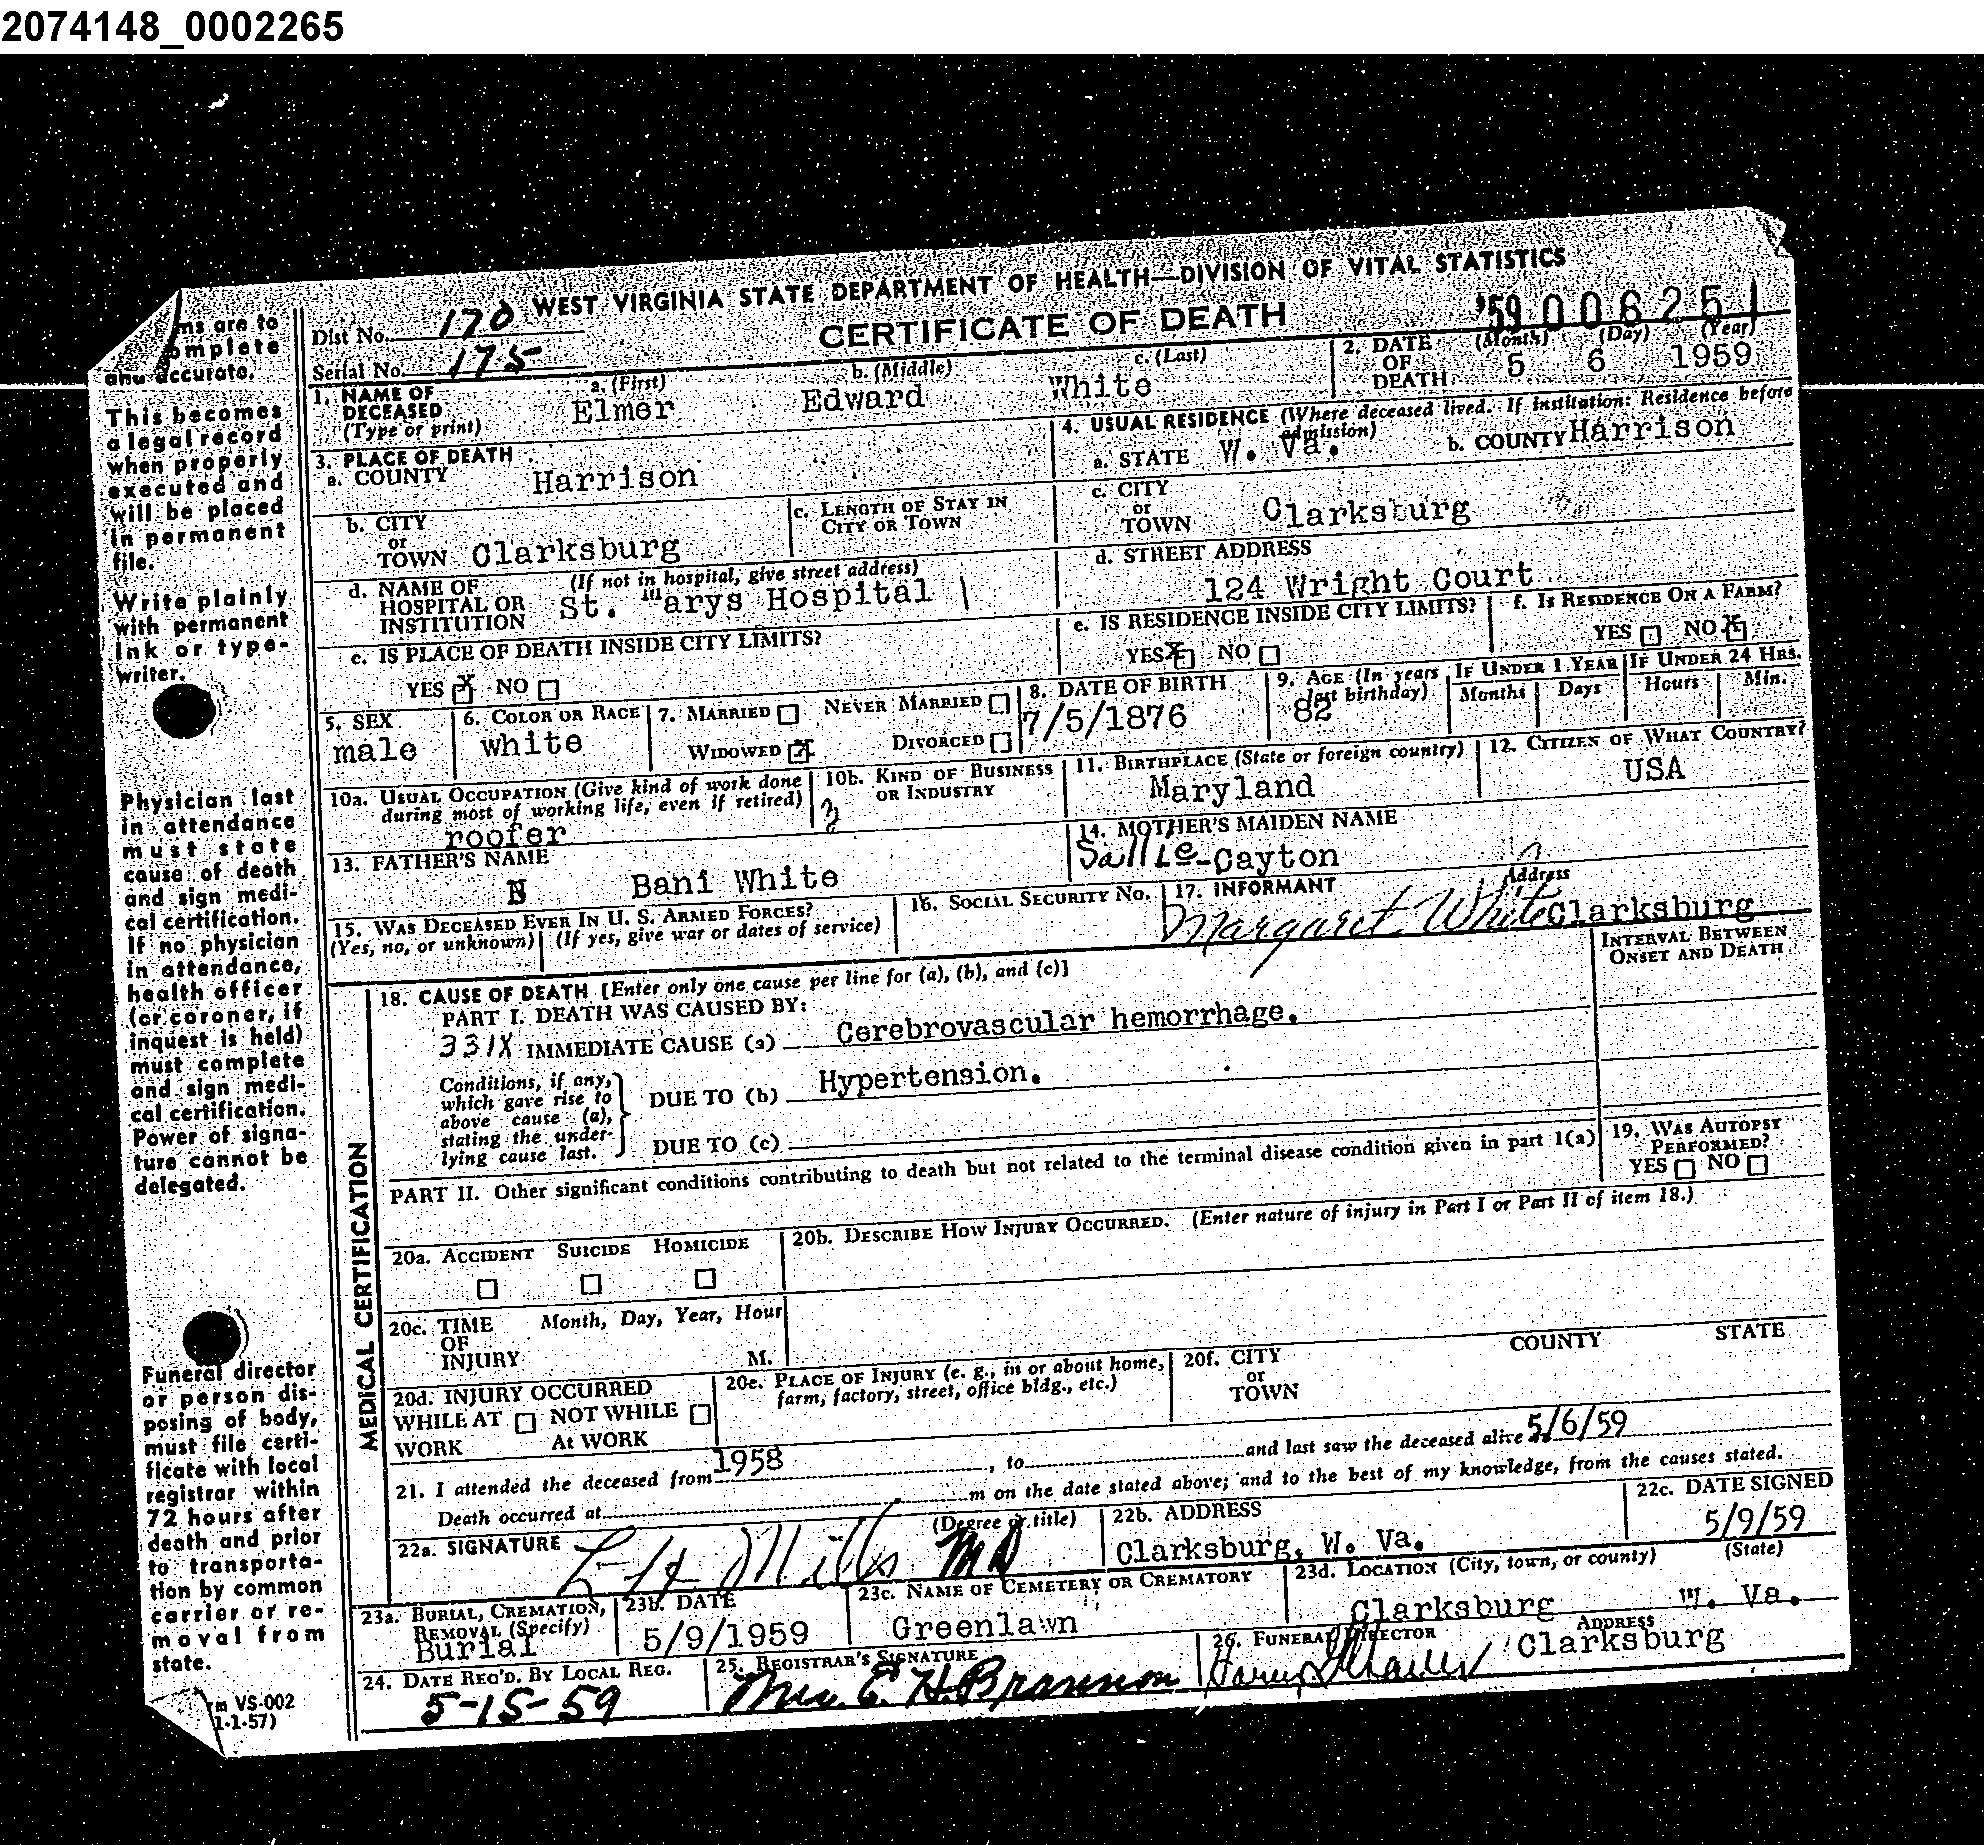 2074148_0002265
WEST VIRGINIA STATE DEPARTMENT OF HEALTH—DIVISION OF VITAL STATISTICS
CERTIFICATE OF DEATH
'59 006251
Dist No. 170
Serial No. 175
1. NAME OF DECEASED (Type or print)
a. (First) Elmer
b. (Middle) Edward
c. (Last) White
2. DATE OF DEATH (Month) (Day) (Year)
5 6 1959
3. PLACE OF DEATH
a. COUNTY Harrison
4. USUAL RESIDENCE (Where deceased lived. If institution: Residence before admission)
a. STATE W. Va. b. COUNTY Harrison
b. CITY or TOWN Clarksburg
c. LENGTH OF STAY IN CITY OR TOWN
c. CITY or TOWN Clarksburg
d. NAME OF HOSPITAL OR INSTITUTION (If not in hospital, give street address)
St. Marys Hospital
d. STREET ADDRESS
124 Wright Court
e. IS PLACE OF DEATH INSIDE CITY LIMITS?
YES X NO
e. IS RESIDENCE INSIDE CITY LIMITS?
YES X NO
f. IS RESIDENCE ON A FARM?
YES NO X
5. SEX
male
6. COLOR OR RACE
white
7. MARRIED NEVER MARRIED
WIDOWED X DIVORCED
8. DATE OF BIRTH
7/5/1876
9. AGE (In years last birthday)
82
IF UNDER 1 YEAR
Months Days
IF UNDER 24 HRS.
Hours Min.
10a. USUAL OCCUPATION (Give kind of work done during most of working life, even if retired)
roofer
10b. KIND OF BUSINESS OR INDUSTRY
11. BIRTHPLACE (State or foreign country)
Maryland
12. CITIZEN OF WHAT COUNTRY?
USA
13. FATHER'S NAME
Bani White
14. MOTHER'S MAIDEN NAME
Sallie Cayton
15. WAS DECEASED EVER IN U. S. ARMED FORCES?
(Yes, no, or unknown) (If yes, give war or dates of service)
16. SOCIAL SECURITY No.
17. INFORMANT Address
Margaret White Clarksburg
MEDICAL CERTIFICATION
18. CAUSE OF DEATH [Enter only one cause per line for (a), (b), and (c)]
INTERVAL BETWEEN ONSET AND DEATH
PART I. DEATH WAS CAUSED BY:
331X IMMEDIATE CAUSE (a) Cerebrovascular hemorrhage.
Conditions, if any, which gave rise to above cause (a), stating the underlying cause last.
DUE TO (b) Hypertension.
DUE TO (c)
PART II. Other significant conditions contributing to death but not related to the terminal disease condition given in part 1(a)
19. WAS AUTOPSY PERFORMED?
YES NO
20a. ACCIDENT SUICIDE HOMICIDE
20b. DESCRIBE HOW INJURY OCCURRED. (Enter nature of injury in Part I or Part II of item 18.)
20c. TIME OF INJURY
Month, Day, Year, Hour
M.
20d. INJURY OCCURRED
WHILE AT WORK NOT WHILE At WORK
20e. PLACE OF INJURY (e. g., in or about home, farm, factory, street, office bldg., etc.)
20f. CITY or TOWN COUNTY STATE
21. I attended the deceased from 1958, to and last saw the deceased alive 5/6/59
Death occurred at m on the date stated above; and to the best of my knowledge, from the causes stated.
22a. SIGNATURE (Degree or title)
Mills MD
22b. ADDRESS
Clarksburg, W. Va.
22c. DATE SIGNED
5/9/59
23a. BURIAL, CREMATION, REMOVAL (Specify)
Burial
23b. DATE
5/9/1959
23c. NAME OF CEMETERY OR CREMATORY
Greenlawn
23d. LOCATION (City, town, or county) (State)
Clarksburg W. Va.
24. DATE REC'D. BY LOCAL REG.
5-15-59
25. REGISTRAR'S SIGNATURE
Mrs. E. H. Brannon
26. FUNERAL DIRECTOR ADDRESS
Clarksburg
ms are to
omplete
and accurate.
This becomes
a legal record
when properly
executed and
will be placed
in permanent
file.
Write plainly
with permanent
ink or type-
writer.
Physician last
in attendance
must state
cause of death
and sign medi-
cal certification.
If no physician
in attendance,
health officer
(or coroner, if
inquest is held)
must complete
and sign medi-
cal certification.
Power of signa-
ture cannot be
delegated.
Funeral director
or person dis-
posing of body,
must file certi-
ficate with local
registrar within
72 hours after
death and prior
to transporta-
tion by common
carrier or re-
moval from
state.
m VS-002
1-1-57)